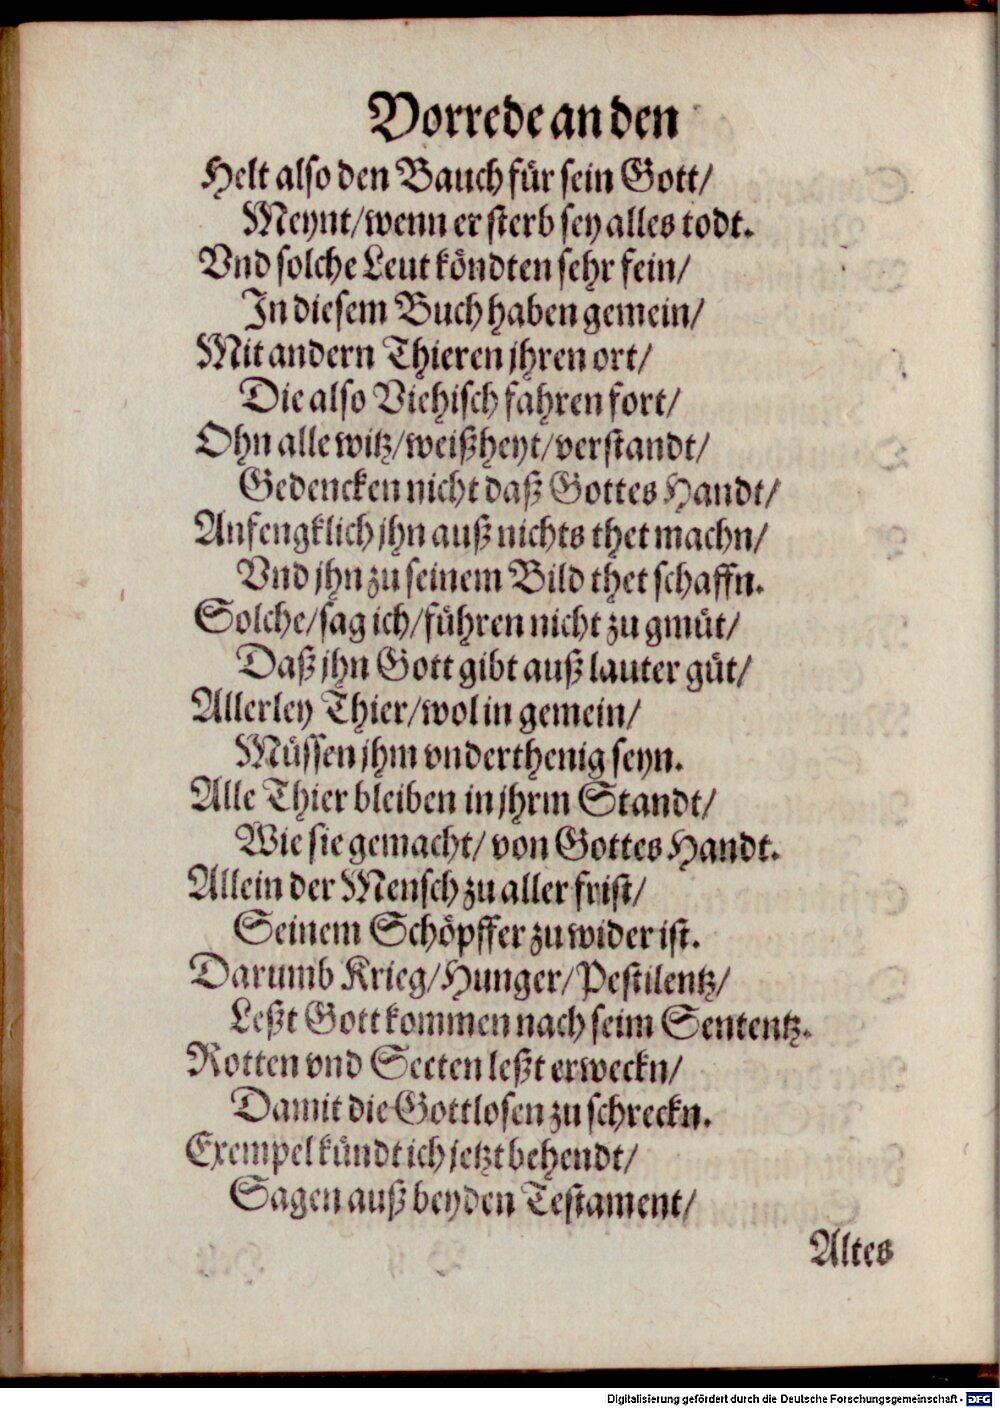 Vorrede an den
Helt also den Bauch für sein Gott/
Meynt/wenn er sterb sey alles todt.
Vnd solche Leut köndten sehr fein/
In diesem Buch haben gemein/
Mit andern Thieren jhren ort/
Die also Viehisch fahren fort/
Ohn alle witz/weißheyt/verstandt/
Gedencken nicht daß Gottes Handt/
Anfengklich jhn auß nichts thet machn/
Vnd jhn zu seinem Bild thet schaffn.
Solche/sag ich/führen nicht zu gmüt/
Daß jhn Gott gibt auß lauter güt/
Allerley Thier/wol in gemein/
Müssen jhm vnderthenig seyn.
Alle Thier bleiben in jhrm Standt/
Wie sie gemacht/ von Gottes Handt.
Allein der Mensch zu aller frist/
Seinem Schöpffer zu wider ist.
Darumb Krieg/Hunger/Pestilentz/
Leßt Gott kommen nach seim Sententz.
Rotten vnd Secten leßt erweckn/
Damit die Gottlosen zu schreckn.
Exempel kündt ich jetzt behendt/
Sagen auß beyden Testament/
Altes
Digitalisierung gefördert durch die Deutsche Forschungsgemeinschaft - DFG